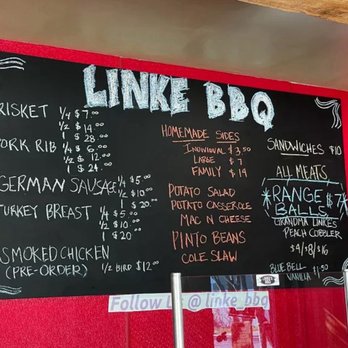 LINKE BBQ
RISKET 1/4 $ 7.00
1/2 $ 14
1 $ 28.00
ORK RIB 1/4 $ 6.00
1/2 $ 12
1 $ 24
GERMAN SAUSAGE 1/4 $ 5.00
1/2 $ 10.00
1 $ 20
TURKEY BREAST 1/4 $ 5.00
1/2 $ 10
1 $ 20
SMOKED CHICKEN
(PRE-ORDER) 1/2 BIRD $12.00
HOMEMADE SIDES
INDIVIDUAL $ 3.50
LARGE $ 7
FAMILY $ 14
POTATO SALAD
POTATO CASSEROLE
MAC N CHEESE
PINTO BEANS
COLE SLAW
SANDWICHES $10
ALL MEATS
RANGE $7
BALLS
GRANDMA LINKE'S
PEACH COBBLER
$4/$8/$16
BLUE BELL $1.50
VANILLA
Follow Us @linke_bbq